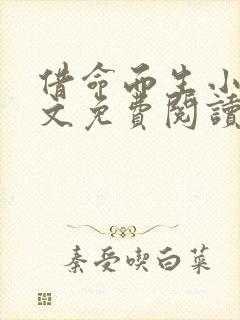 借命而生小
文免费閱讀
秦受喫白菜